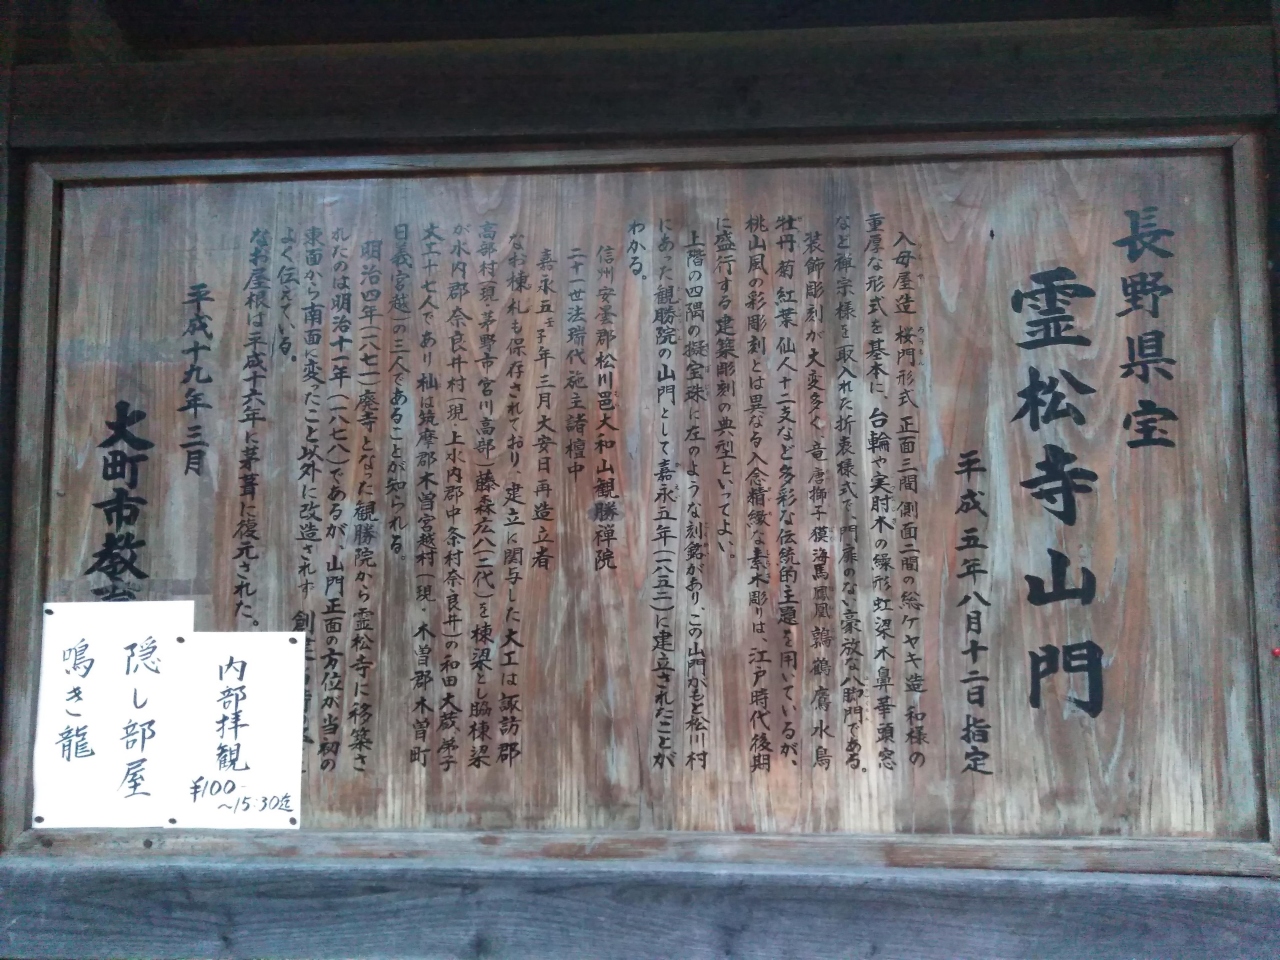 長野県宝
霊松寺山門
平成五年八月十二日指定
入母屋造 桜門形式 正面三間 側面二間の総ケヤキ造 和様の
重厚な形式を基本に、台輪や実肘木の繰形 虹梁木鼻 華頭窓
など禅宗様を取入れた折衷様式で、門扉のない豪放な八脚門である。
装飾彫刻が大変多く、竜 唐獅子 獏 海馬 鳳凰 鶉 鶴 鷹 水鳥
牡丹 菊 紅葉 仙人 十二支など多彩な伝統的主題を用いているが、
桃山風の彩彫刻とは異なる入念精緻な素木彫りは、江戸時代後期
に盛行する建築彫刻の典型といってよい。
上階の四隅の擬宝珠に左のような刻銘があり、この山門がもと松川村
にあった観勝院の山門として嘉永五年(一八五二)に建立されたことが
わかる。
信州安曇郡松川邑大和山観勝禅院
二十一世法瑞代 施主諸檀中
嘉永五壬子年三月大安日再造立者
なお棟札も保存されており、建立に関与した大工は諏訪郡
高部村(現・茅野市宮川高部)藤森広八(二代)を棟梁とし脇棟梁
が水内郡奈良井村(現・上水内郡中条村奈良井)の和田大蔵、弟子
大工十七人であり 杣は筑摩郡木曽宮越村(現・木曽郡木曽町
日義宮越)の三人であることが知られる。
明治四年(一八七一)廃寺となった観勝院から霊松寺に移築さ
れたのは明治十一年(一八七八)であるが、山門正面の方位が当初の
東面から南面に変ったこと以外に改造されず 創
よく伝えている。
なお屋根は平成十六年に茅葺に復元された。
平成十九年三月
大町市教
内部拝観
¥100
～15:30迄
隠し部屋
鳴き龍